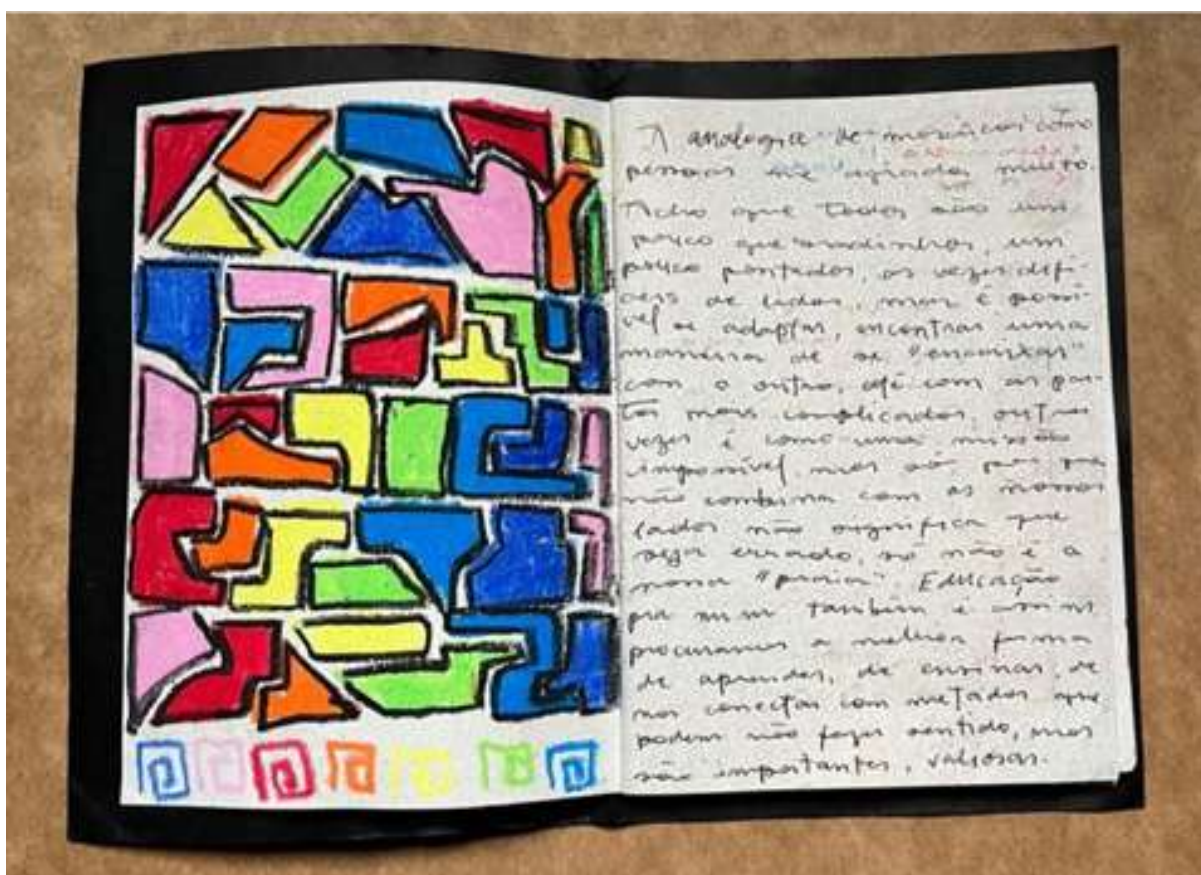 A analogia de mosaicos como
pessoas me agrada muito.
Acho que todos são um
pouco quebradinhos, um
pouco pontudos, as vezes difí-
ceis de lidar, mas é possí-
vel se adaptar, encontrar uma
maneira de se "encaixar"
com o outro, até com as par-
tes mais complicadas, outras
vezes é como uma missão
impossível, mas só por que
não combina com os nossos
lados não significa que
seja errado, só não é a
nossa "praia". Educação
pra mim também é assim
procuramos a melhor forma
de aprender, de ensinar, de
nos conectar com metades que
podem não fazer sentido, mas
são importantes, valiosas.